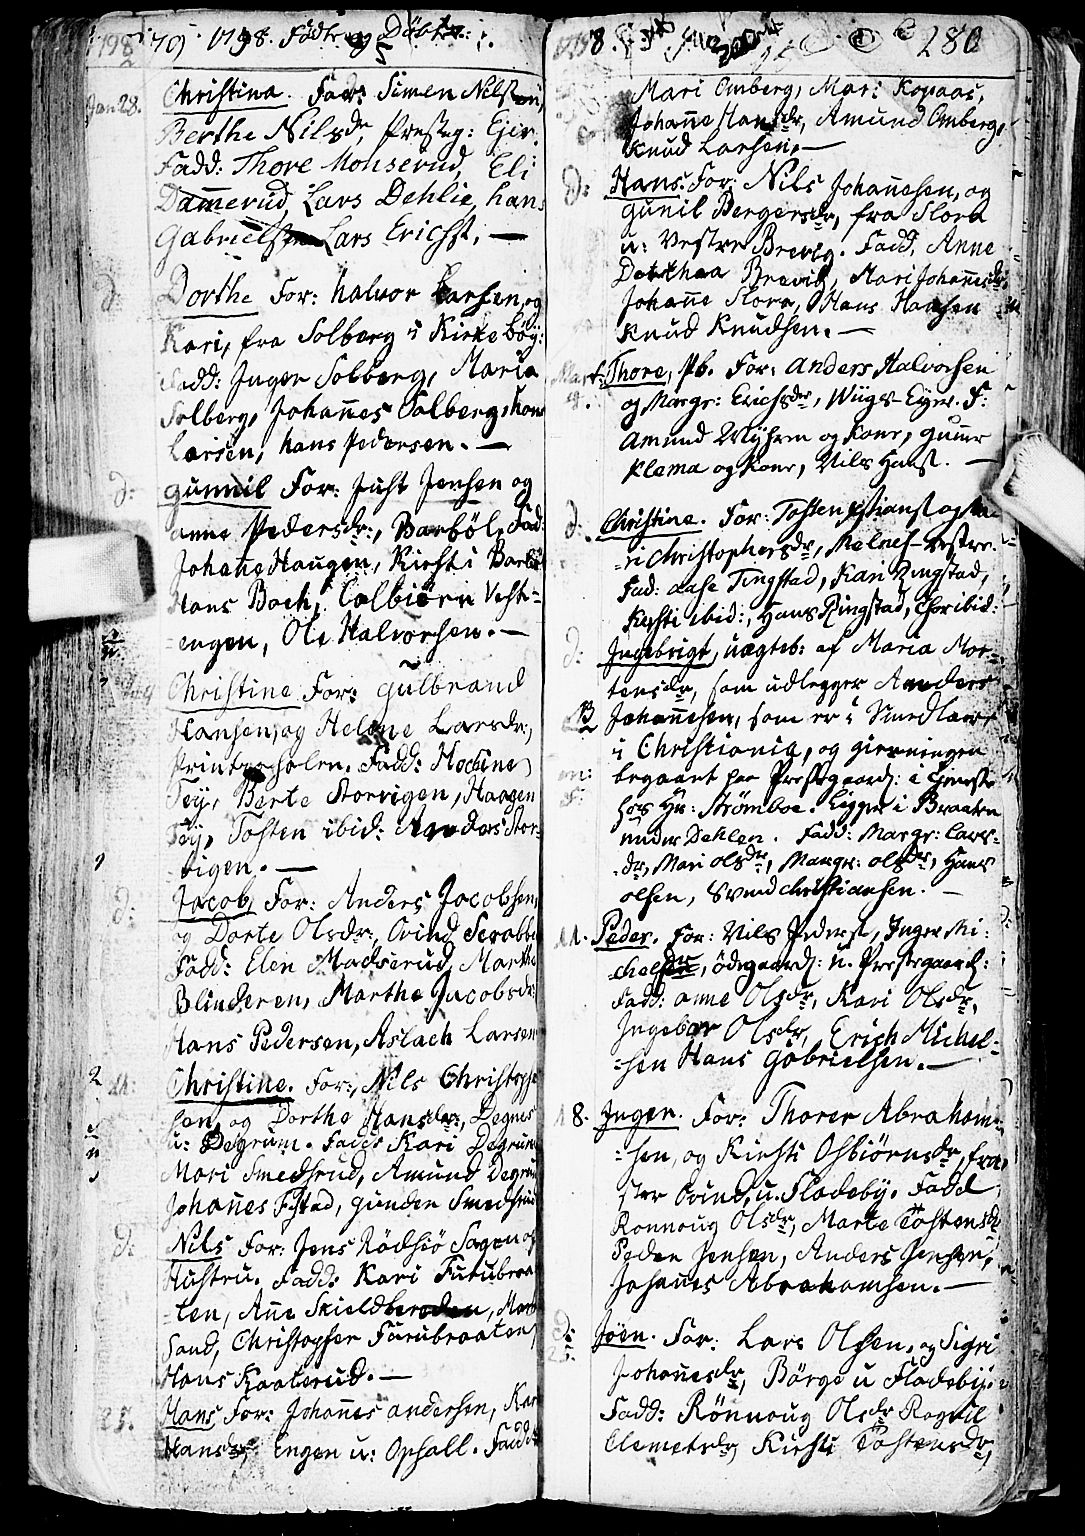 1798. Födte og Döbte.
Jan 28. Christina. Fadr: Simen Nilsen,
Berthe Nilsdr, Presteg: Ejer.
Fadd: Thore Monserud, Eli
Damerud, Lars Dehlie, hans
Gabrielsen Lars Erichs. —
d: Dorthe For: halvor Larsen, og
Kari, fra Solberg i Kirkebøy:
Fadd: Inger Solberg, Maria
Solberg, Johanes Solberg,
Larsen, hans Pedersen. —
d: gunnil For: Just Jensen og
anne Pedersdr:, Barböl, Fad:
Johane Haugen, Kirsti Barböl
Hans Boch, Colbiörn Vest-
-engen, Ole Halvorsen. —
Christine For: gulbrand
Hansen, og Helene Larsdr:,
Fadd:
Tey, Berte Storrigen, Haagen
Tey, Tosten ibid: Anders Stor-
-rigen. —
d: Jacob, For: Anders Jacobsen,
og Dorte Olsdr:, Ovind
Fadd: Elen Madserud, Marthe
Blinderen, Marthe Jacobsdr:
Hans Pedersen, Aslach Larsen
11: Christine. For:, Nils Christoph
sen, og Dorthe Hansdr:, Degnes
u: Degrum. Fadd: Kari Degrum
Mari Smedsrud, Amund Degrum
Johanes Fjstad, gunder Smedsrud
d: Nils For: Jens Rödsiö Sagen og
Hustru. Fadd: Kari Furubraa
-ten, Ane Skieldbereden, Mari
Sand, Christopher Furubraaten,
Hans Kaaterud. —
25. Hans For: Johanes andersen, Kari
Hansdr, Engen u: Ophall. Fadd:
1798. 280
Mari Omberg, Mar: Kopaas,
Johane Hansdr, Amund Omberg,
Knud Larsen, —
d: Hans. For: Nils Johanesen, og
gunil Bergersdr, fra Flora
u: Vestre Brevig. Fadd. Anne
Dorthaa Brevik, Mari Johanesdr,
Johane Flora, Hans Hansen
Knud Knudsen. —
Mart: Thore, Pb. For: Anders Halvorsen
4. og Margr: Erichsdr, Wiigs-Eyer. F:
Amund Myhren og Kone, gunner
Klama og Kone, Nils Hans. —
d: Christine. For: Tosten
-ri Christophersdr, Melnes vestre.
Fad: aase Tingstad, Kari Ringstad,
Kirsti ibid:, Hans Ringstad, Thor ibid:
d: Ingebrigt, uægteb: af Maria Mor-
tensdr, som udlegger Anders
Johanesen, som er i Smedlære
i Christiania, og gierningen
begaaet paa Prestegaard: i
hos Hr: Strömboe. Ligger i Braaten
under Dehlen. Fadd: Margr: Lars-
dr, Mari olsdr, Margr: olsdr, Hans
olsen, Svend Christiansen. —
11. Peder. For: Nils Peders, Inger Mi-
chelsdr, ödegaard: n. Prestegaard:
Fadd: anne Olsdr, Kari Olsdr,
Ingebor Olsdr, Erich Michel-
-sen Hans gabrielsen. —
18. Inger. For: Thorer Abraham-
-sen, og Kirsti Osbiörnsdr, fra
Ovind, u. Fladeby. Fadd
Ronnoug Olsdr, Marte Tostensdr,
Peder Jensen, Anders Jensen,
Johanes Abrahamsen. —
d: Joen. For: Lars Olsen, og Sigri
25. Johanesdr, Börge u Fladebij.
Fadd: Rönnoug Olsdr Ragnil
Clemetsdr, Kirsti Tostensdr,